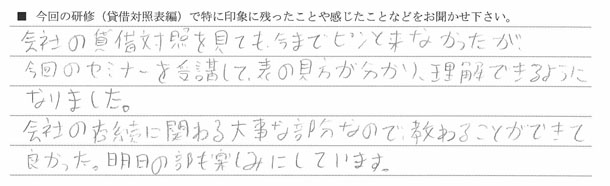 ■ 今回の研修（貸借対照表編）で特に印象に残ったことや感じたことなどをお聞かせ下さい。
会社の貸借対照を見ても、今までピンと来なかったが、
今回のセミナーを受講して、表の見方が分かり、理解できるように
なりました。
会社の存続に関わる大事な部分なので、教わることができて
良かった。明日の部も楽しみにしています。